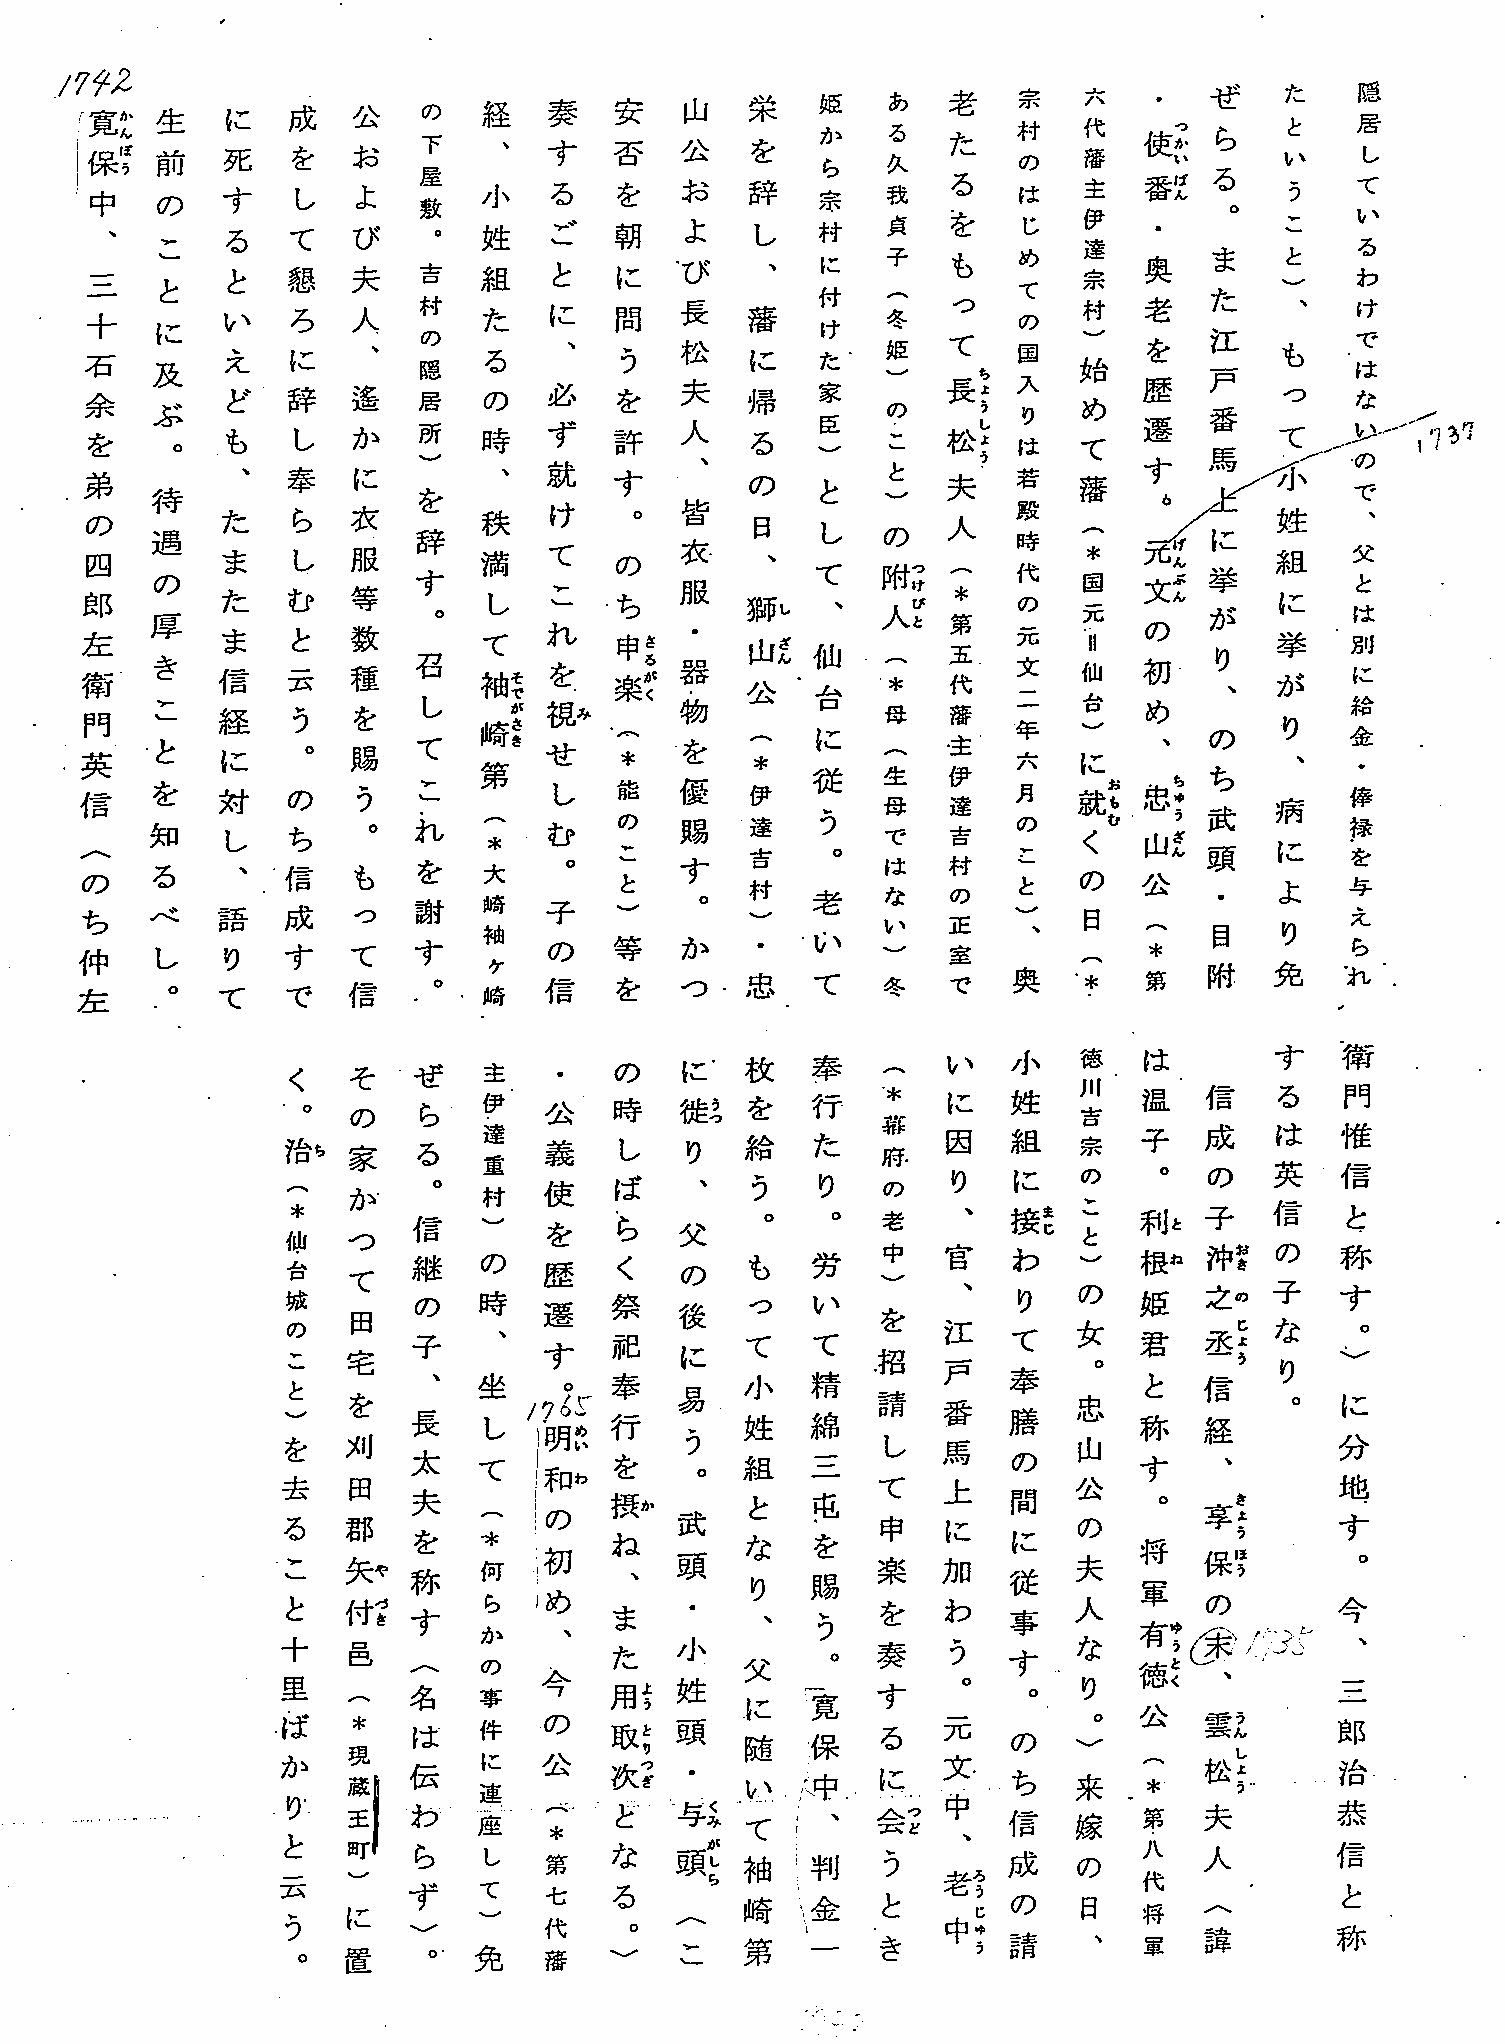 隠居しているわけではないので、父とは別に給金・俸禄を与えられ
たということ）、もって小姓組に挙がり、病により免
ぜらる。また江戸番馬上に挙がり、のち武頭・目附
・使番・奥老を歴遷す。元文の初め、忠山公（＊第
六代藩主伊達宗村）始めて藩（＊国元＝仙台）に就くの日（＊
宗村のはじめての国入りは若殿時代の元文二年六月のこと）、奥
老たるをもって長松夫人（＊第五代藩主伊達吉村の正室で
ある久我貞子（冬姫）のこと）の附人（＊母（生母ではない）冬
姫から宗村に付けた家臣）として、仙台に従う。老いて
栄を辞し、藩に帰るの日、獅山公（＊伊達吉村）・忠
山公および長松夫人、皆衣服・器物を優賜す。かつ
安否を朝に問うを許す。のち申楽（＊能のこと）等を
奏するごとに、必ず就けてこれを視せしむ。子の信
経、小姓組たるの時、秩満して袖崎第（＊大崎袖ヶ崎
の下屋敷。吉村の隠居所）を辞す。召してこれを謝す。
公および夫人、遙かに衣服等数種を賜う。もって信
成をして懇ろに辞し奉らしむと云う。のち信成すで
に死するといえども、たまたま信経に対し、語りて
生前のことに及ぶ。待遇の厚きことを知るべし。
1742
寛保中、三十石余を弟の四郎左衛門英信〈のち仲左
1737
衛門惟信と称す。〉に分地す。今、三郎治恭信と称
するは英信の子なり。
信成の子沖之丞信経、享保の末、雲松夫人〈諱
1735
は温子。利根姫君と称す。将軍有徳公（＊第八代将軍
徳川吉宗のこと）の女。忠山公の夫人なり。〉来嫁の日、
小姓組に接わりて奉膳の間に従事す。のち信成の請
いに因り、官、江戸番馬上に加わう。元文中、老中
（＊幕府の老中）を招請して申楽を奏するに会うとき
奉行たり。労いて精綿三屯を賜う。寛保中、判金一
枚を給う。もって小姓組となり、父に随いて袖崎第
に徙り、父の後に易う。武頭・小姓頭・与頭〈こ
の時しばらく祭祀奉行を摂ね、また用取次となる。〉
・公義使を歴遷す。明和の初め、今の公（＊第七代藩
1765
主伊達重村）の時、坐して（＊何らかの事件に連座して）免
ぜらる。信継の子、長太夫を称す〈名は伝わらず〉。
その家かつて田宅を刈田郡矢付邑（＊現蔵王町）に置
く。治（＊仙台城のこと）を去ること十里ばかりと云う。